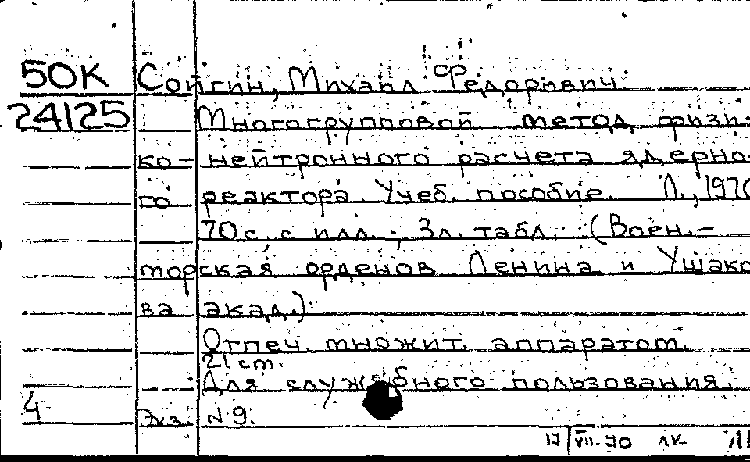 50К Сойгин, Михаил Федорович.
24125 Многогрупповой метод физи-
ко-нейтронного расчета ядерно-
го реактора. Учеб. пособие. Л., 1970
70 с. с илл.; 3 л. табл. (Воен.-
морская орденов Ленина и Ушако
ва акад.).
Отпеч. множит. аппаратом.
21 cm.
Для служебного пользования.
4 Экз. N 9.
17/VII-70 ЛК